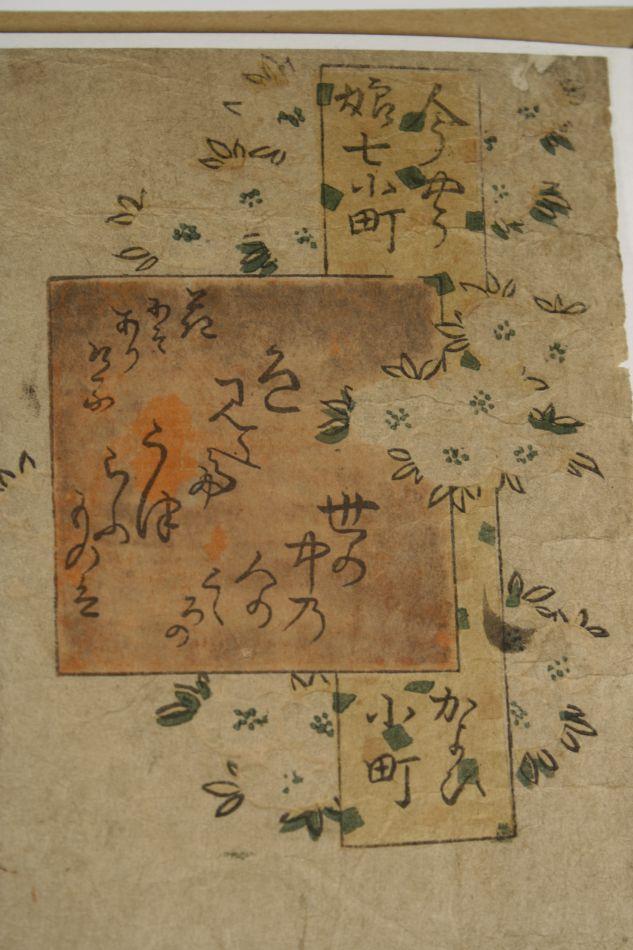 今やう
娘七小町
かよひ
小町
色
みえて
う津
ろふ
ものは
世の
中乃
人の
こゝ
ろの
花
にそ
あり
ける